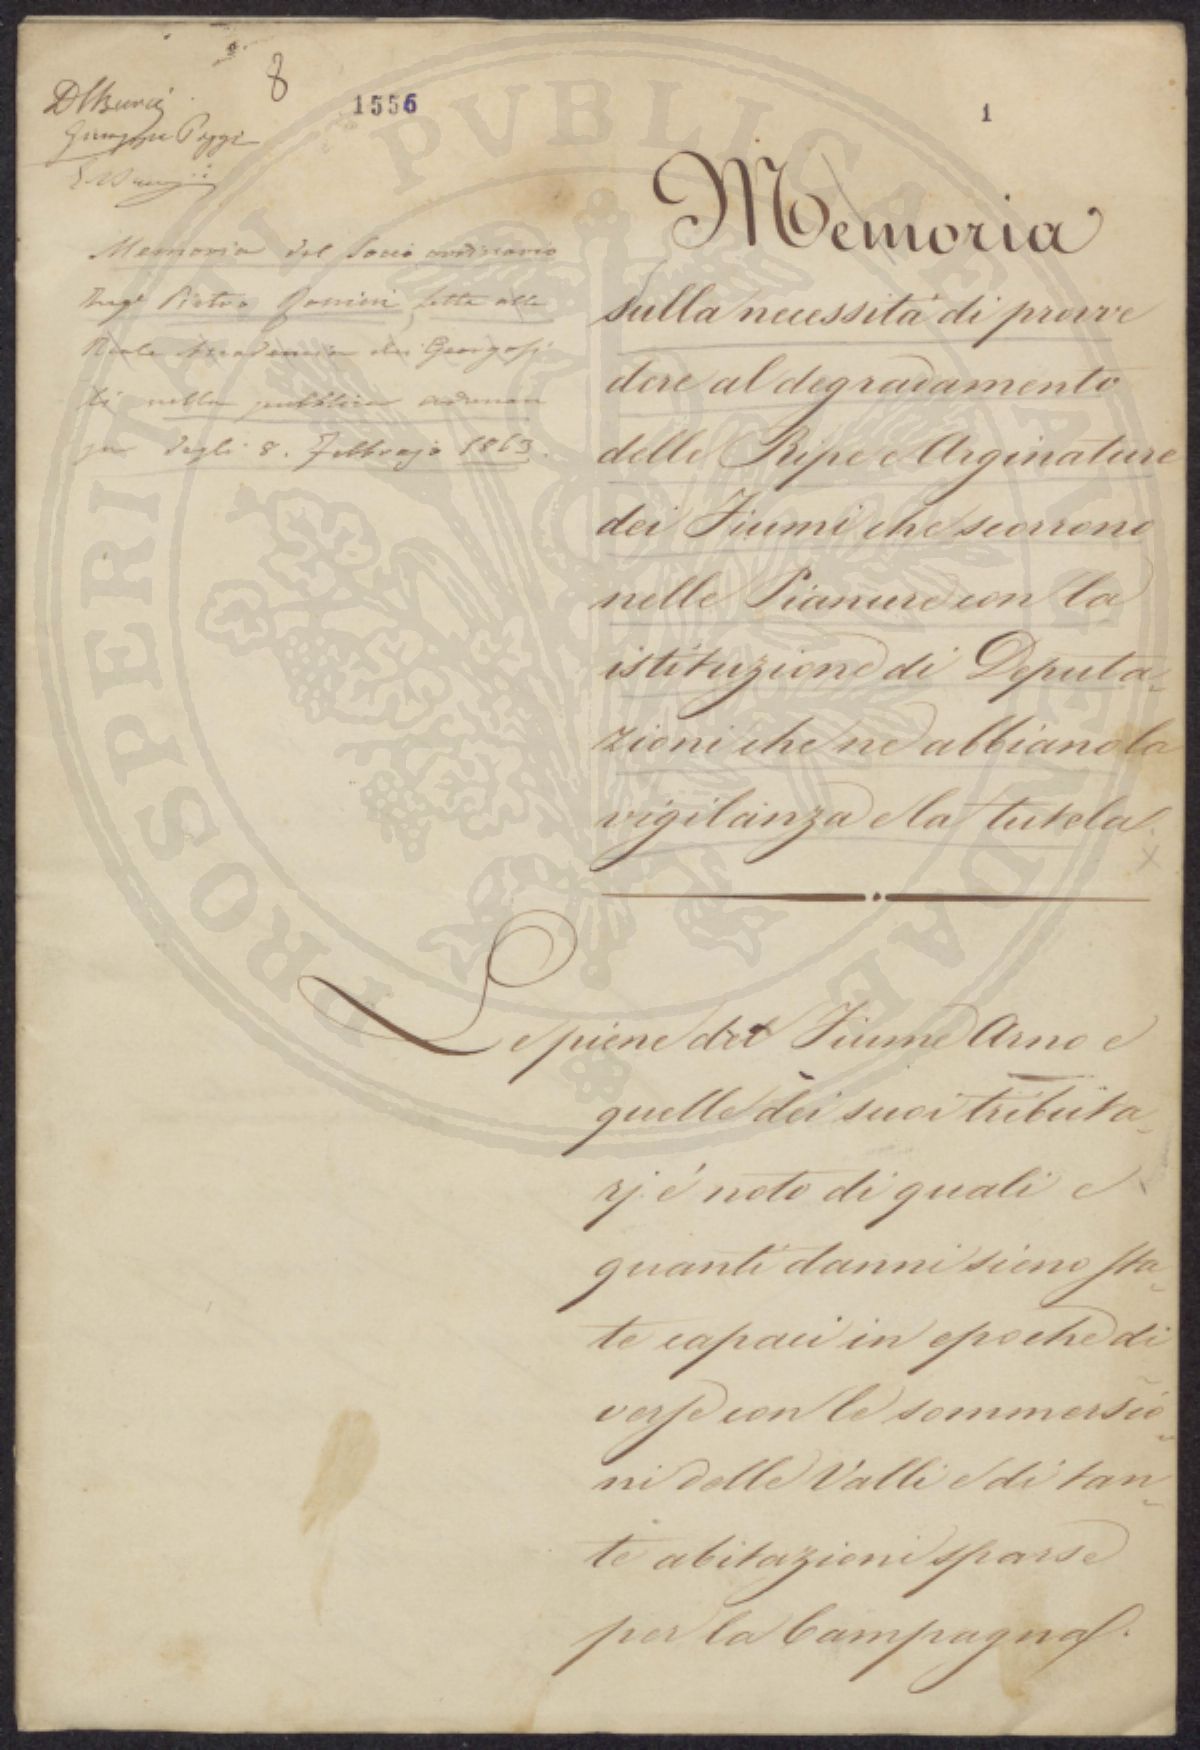 8
1556
1
Giuseppe Poggi
Memoria del Socio ordinario
Ing.e Pietro letta alla
Reale Accademia dei Georgofi
li nella pubblica adunan
za degli 8. Febbrajo 1863.
Memoria
sulla necessità di provve
dere al degradamento
delle Ripe e Arginature
dei Fiumi che scorrono
nelle Pianure con la
istituzione di Deputa-
zioni che ne abbiano la
vigilanza e la tutela.
Le piene del Fiume Arno e
quelle dei suoi tributa-
rj è noto di quali e
quanti danni sieno sta-
te capaci in epoche di
verse con le sommersio-
ni delle Valli e di tan-
te abitazioni sparse
per la Campagna.
PROSPERITATI PVBLICAE AVGENDAE